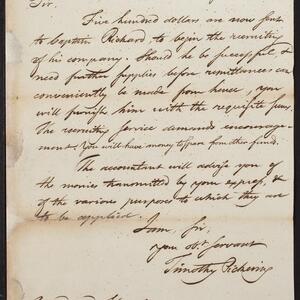 Sir.
Five hundred dollars are now sent
to Captain Richard, to begin the recruiting
of his company. Should he be successful, &
need further supplies before remittances can
conveniently be made from hence, you
will furnish him with the requisite sums.
The recruiting service demands encourage-
ment. You will have money to spare from other funds.
The accountant will advise you of
the monies transmitted by your express, &
of the various purposes to which they are
to be applied.
I am, Sir,
your obt. servant
Timothy Pickering